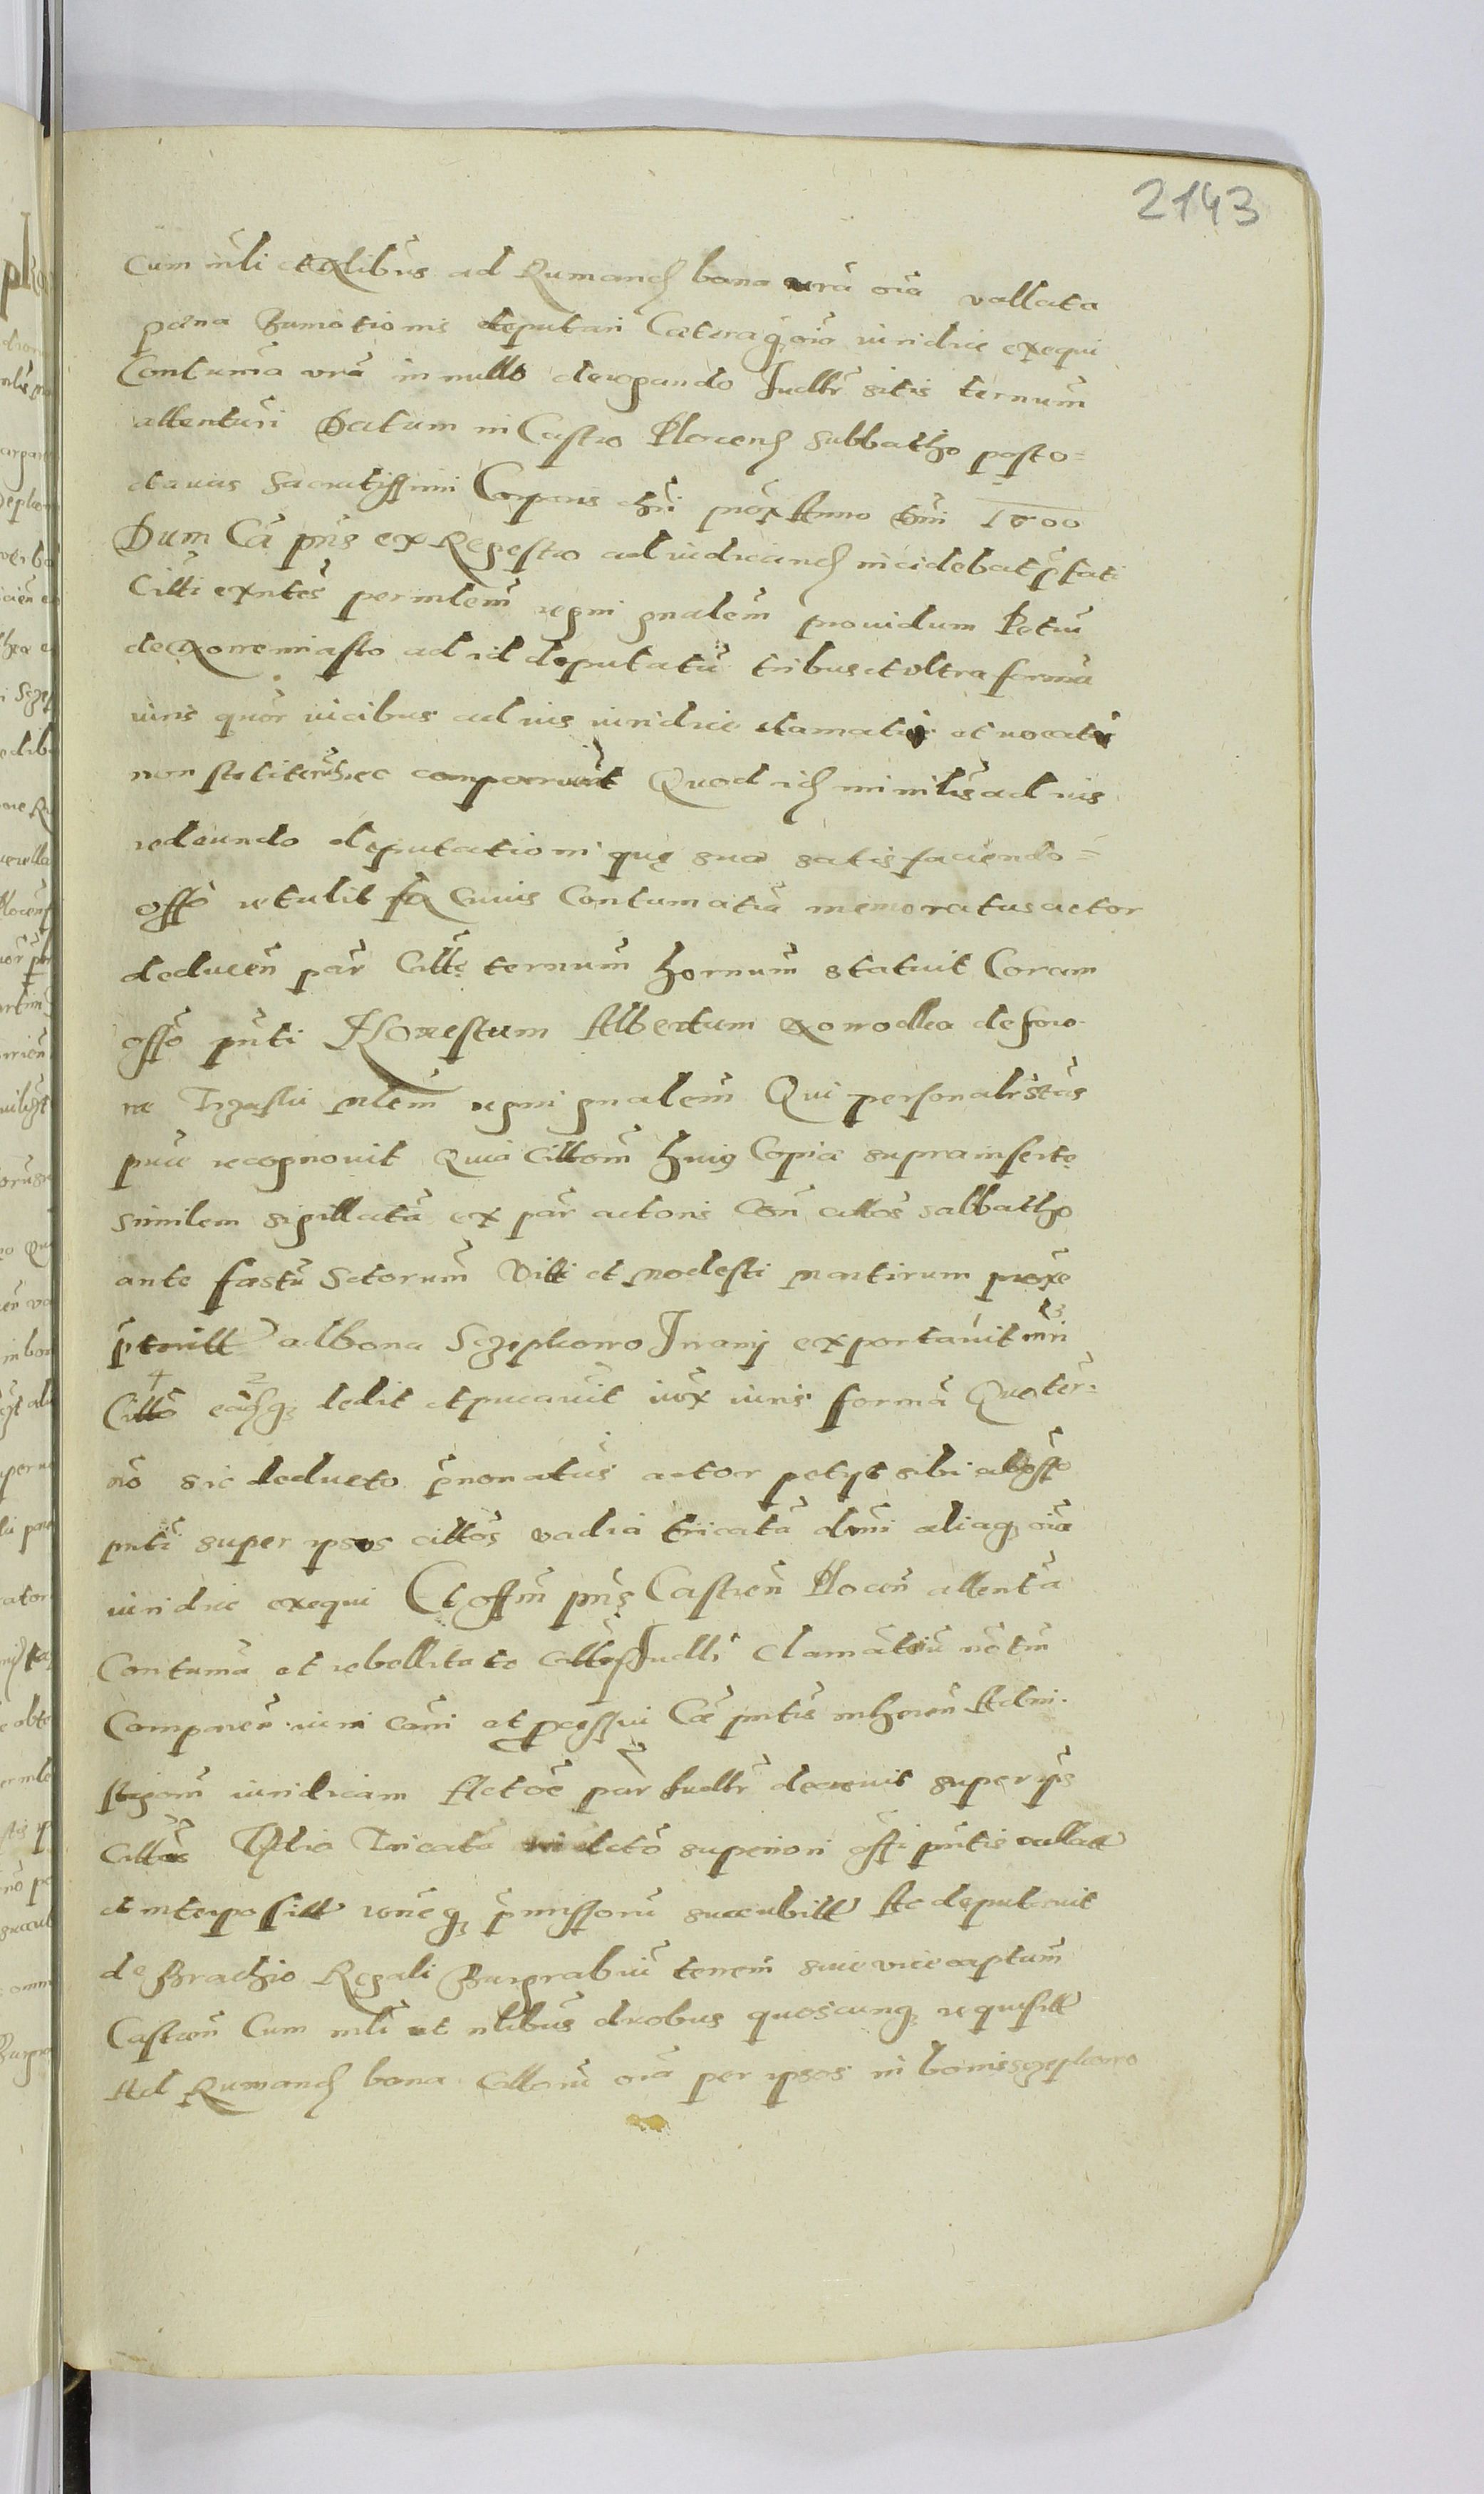 2143
Cum mli et nlibus ad Rumand bona vra oia vallata
pœna Bannitionis deputari Cæteraq oia iuridice exequi
Contuma vra in nullo derogando Iudllr sitis ternum
attenturi Datum in Castro Plocen Sabbatho post o=
ctauas Sacratissimi Corporis chri prox Anno Dni 1600
Dum Ca pns ex Regestro ad iudicand incidebat pfati
Citti exntes per mlem regni gnalem prouidum Petru
de ad id deputatu tribus et vltra forma
iuris quor vicibus ad ius iuridice clamati et uocati
non stetiter nec comparuerut Quod id minilis ad ius
redeundo deputationi quę suæ satis faciendo=
offo retulit In Cuius Contumatia memoratus actor
deducen par Cittę ternum hornum statuit Coram
offo pnti Honestum Albertum de
ra mlem regni gnalem Qui personalr stãs
pure recognouit Quia Cittom huiq Copiæ suprainsertę
similem sigillata ex par actoris Con cittos sabbatho
ante fæstu Sctorum Viti et Modesti Martirum proxe
pteritt ad bona Szeplono Irzanj exportauit mri
Citto easq dedit et pucauit iux iuris forma Quo ter=
no sic deducto pnonatus actor petyt sibi ab offo
pnti super ipsos cittos vadia tricata dnri aliaq oia
iuridice exequi Et offm pns Castren Plocen attenta
Contuma et rebellitate Cittor Iudlli clamatoru no tm
Comparen iuri coni et pcessui Cæ pntis inhæren Admi-
stragom iuridicam Actoe par Iudllr decreuit super ips
Cittos Vadia Tricata in Acto superiori offi pntis vallatt
et interpositt roneq pmissoru succubitt Ac deputauit
de Brachio Regali Burgrabiu terren siue vice captum
Castren Cum mli et nlibus duobus quoscunq requisitt
Ad Rumand bona cittoru oia per ipsos in bonis Szeplono